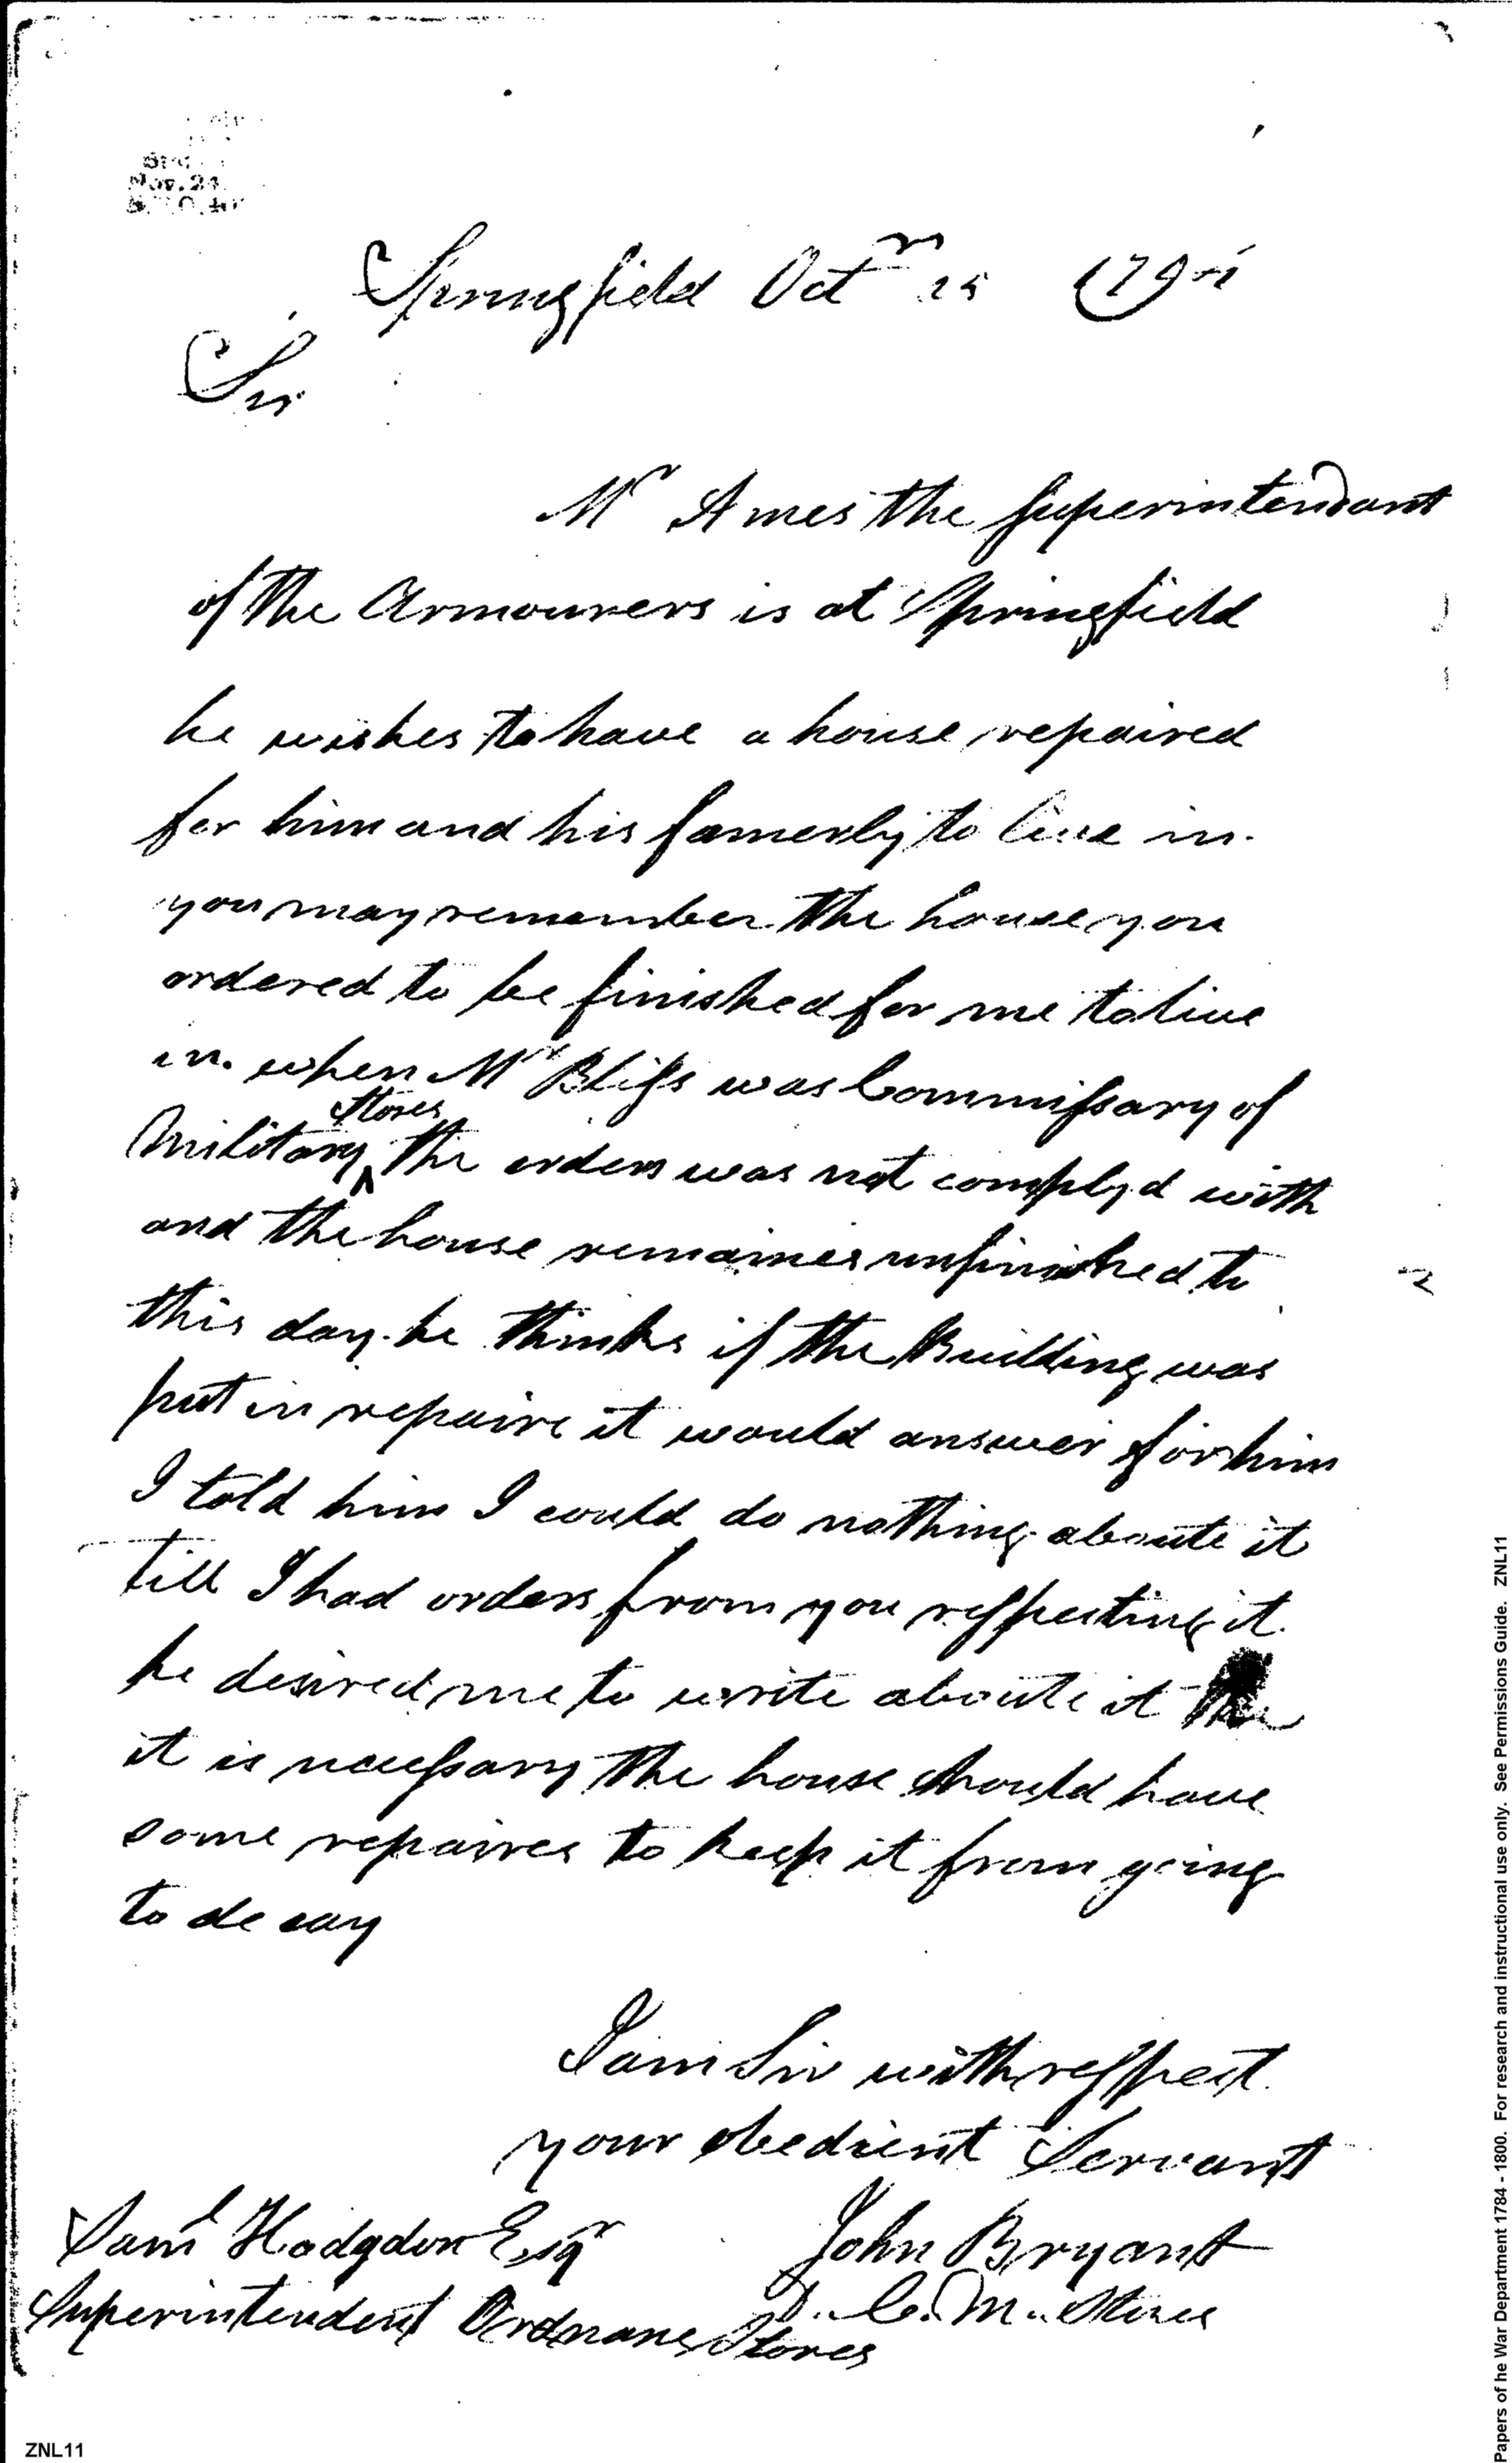 Nov. 24
Springfield Octr 25 179
Sir
Mr Ames the Superintendant
of the Armourers is at Springfield
he wishes to have a house repaired
for him and his famerly to live in.
you may remember the house you
ordered to be finished for me to live
in. when Mr Bliss was Commissary of
Stores
Military ^ the orders was not complyd with
and the house remaines unfinished to
this day. he thinks if the Building was
put in repaire it would answer for him
I told him I could do nothing aboute it
till I had orders from you respecting it.
he desired me to write aboute it the
it is necessary the house should have
some repaires to keep it from going
to decay
I am Sir with respect.
your obedient Servant
Saml Hodgdon Esqr John Bryant
Superintendent Ordnance Stores D. C. M. Stores
ZNL11
Papers of he War Department 1784 - 1800. For research and instructional use only. See Permissions Guide. ZNL11